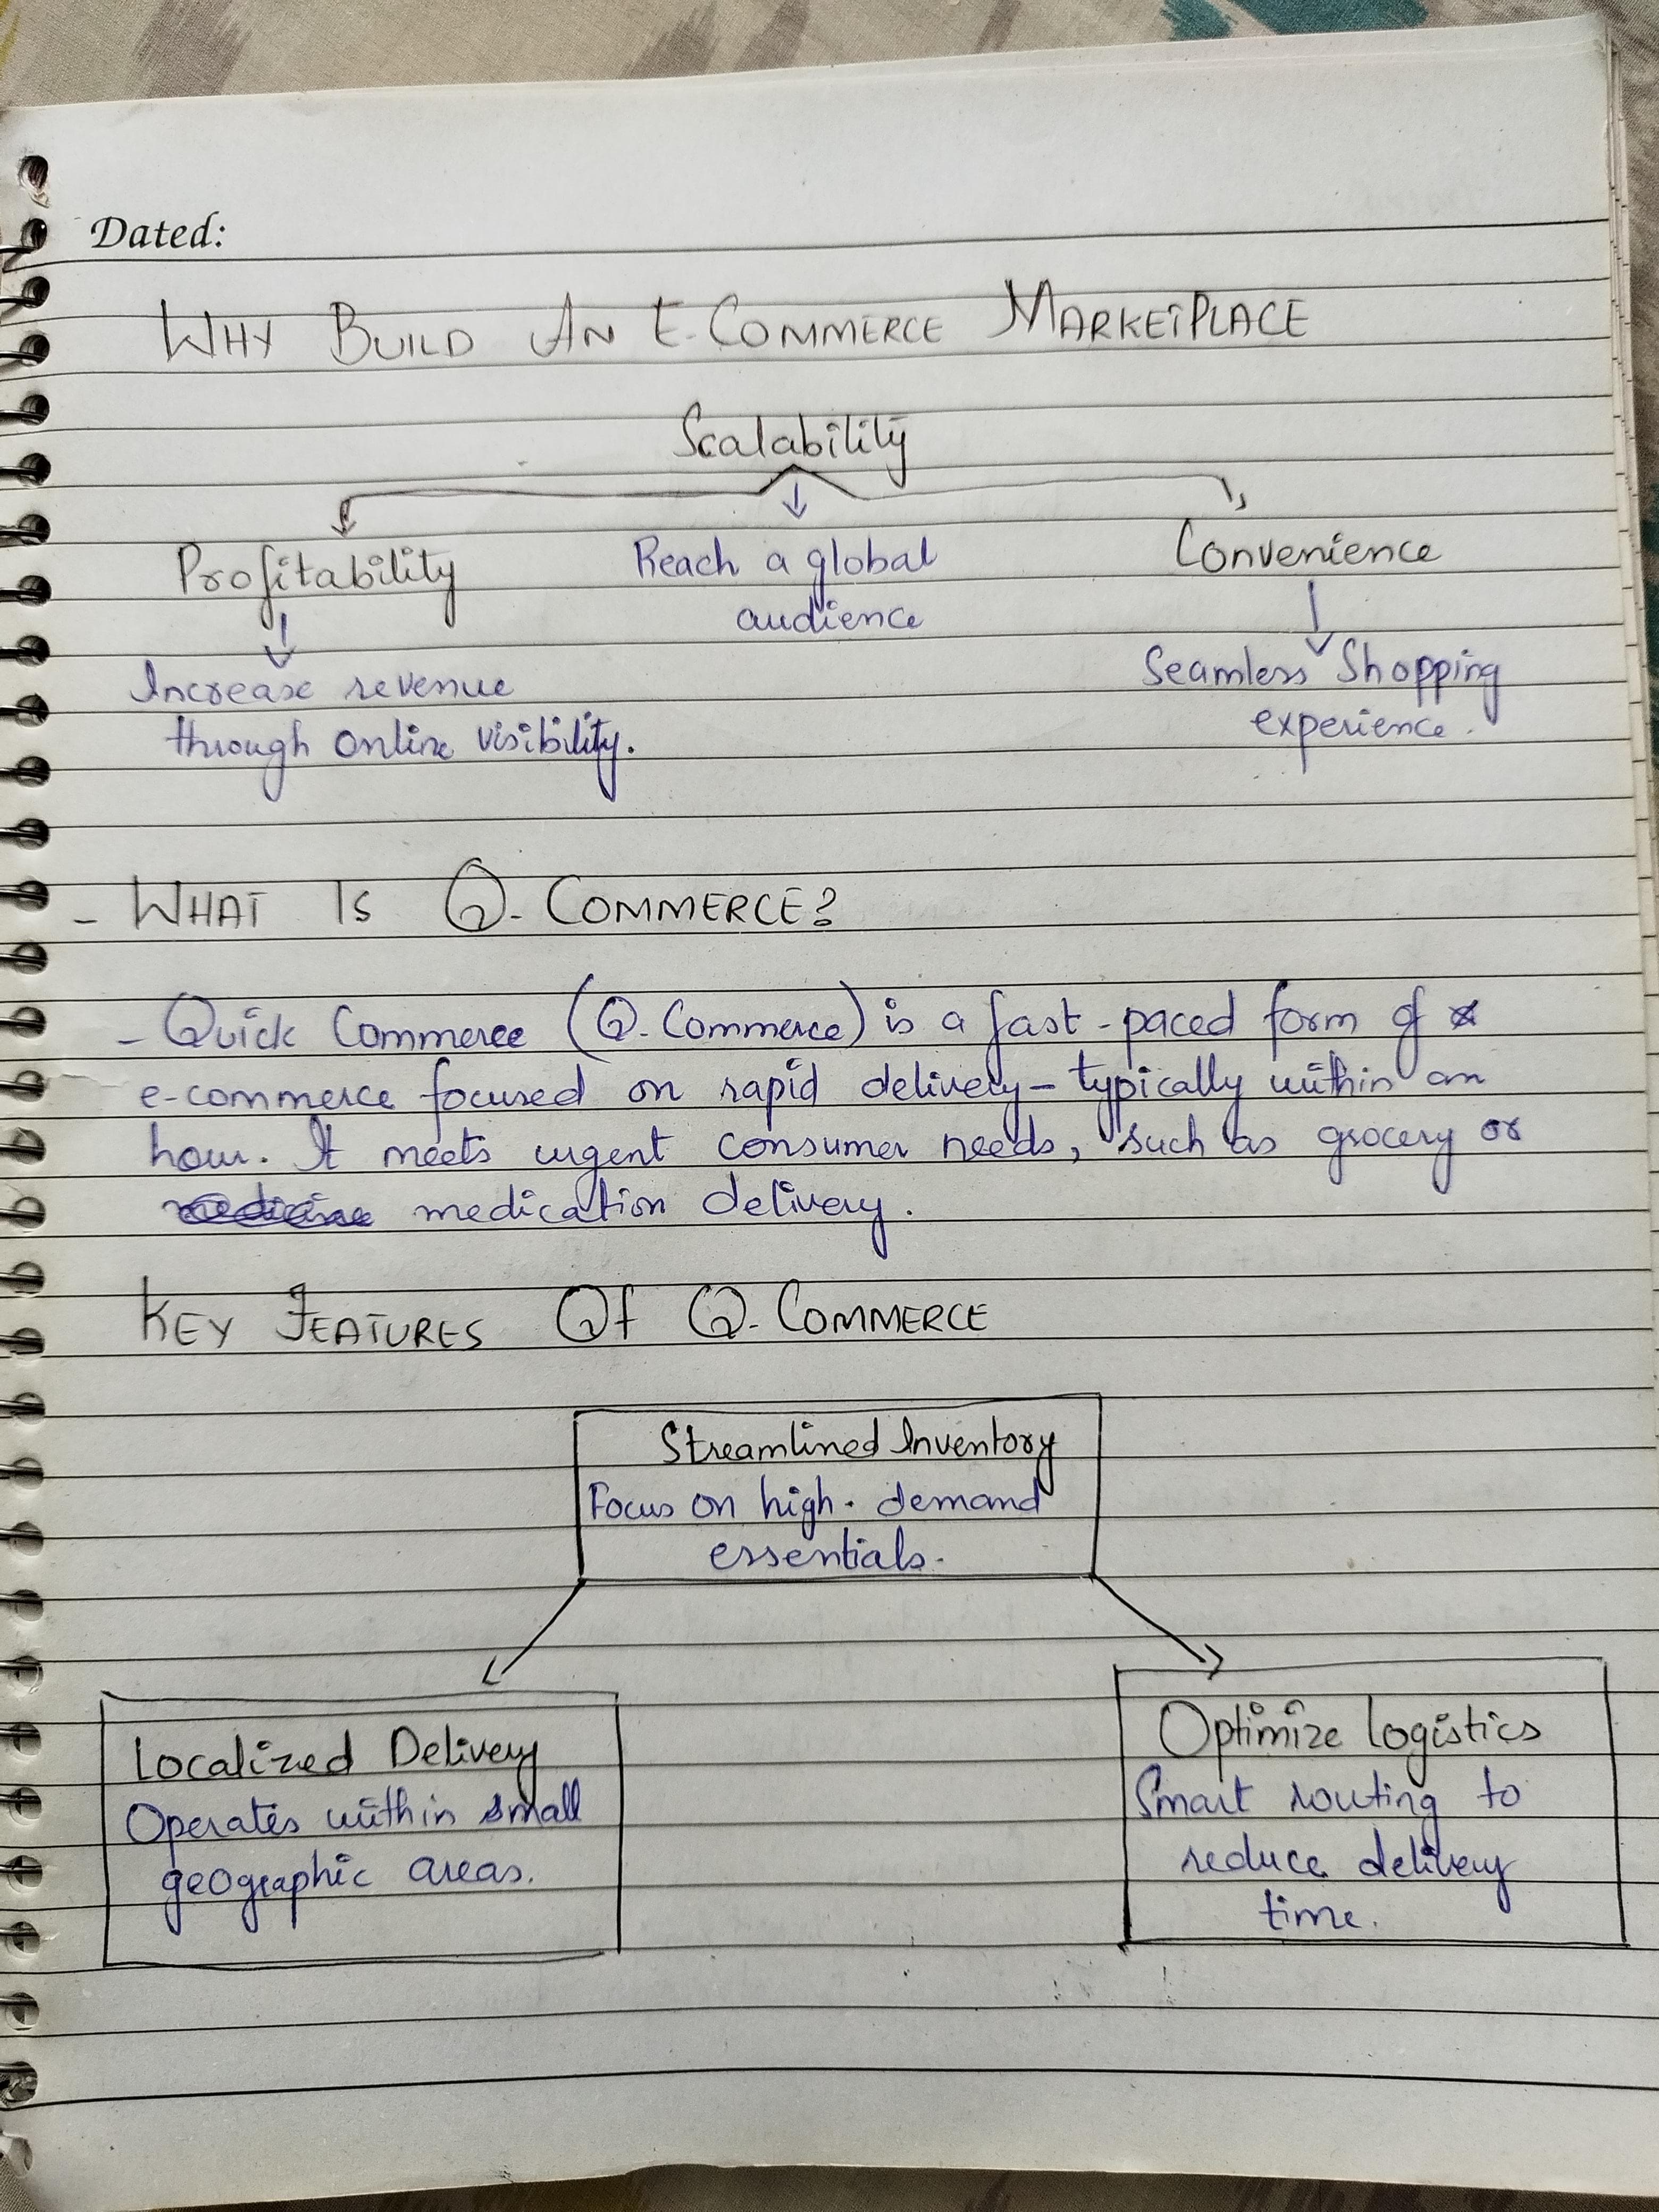 Dated:
WHY BUILD AN E-COMMERCE MARKETPLACE
Scalability
Profitability
Reach a global
audience
Convenience
Increase revenue
through online visibility.
Seamless Shopping
experience.
- WHAT IS Q-COMMERCE?
- Quick Commerce (Q-Commerce) is a fast-paced form of
e-commerce focused on rapid delivery - typically within an
hour. It meets urgent consumer needs, such as grocery or
medicine medication delivery.
KEY FEATURES OF Q-COMMERCE
Streamlined Inventory
Focus on high-demand
essentials.
Localized Delivery
Operates within small
geographic areas.
Optimize logistics
Smart routing to
reduce delivery
time.